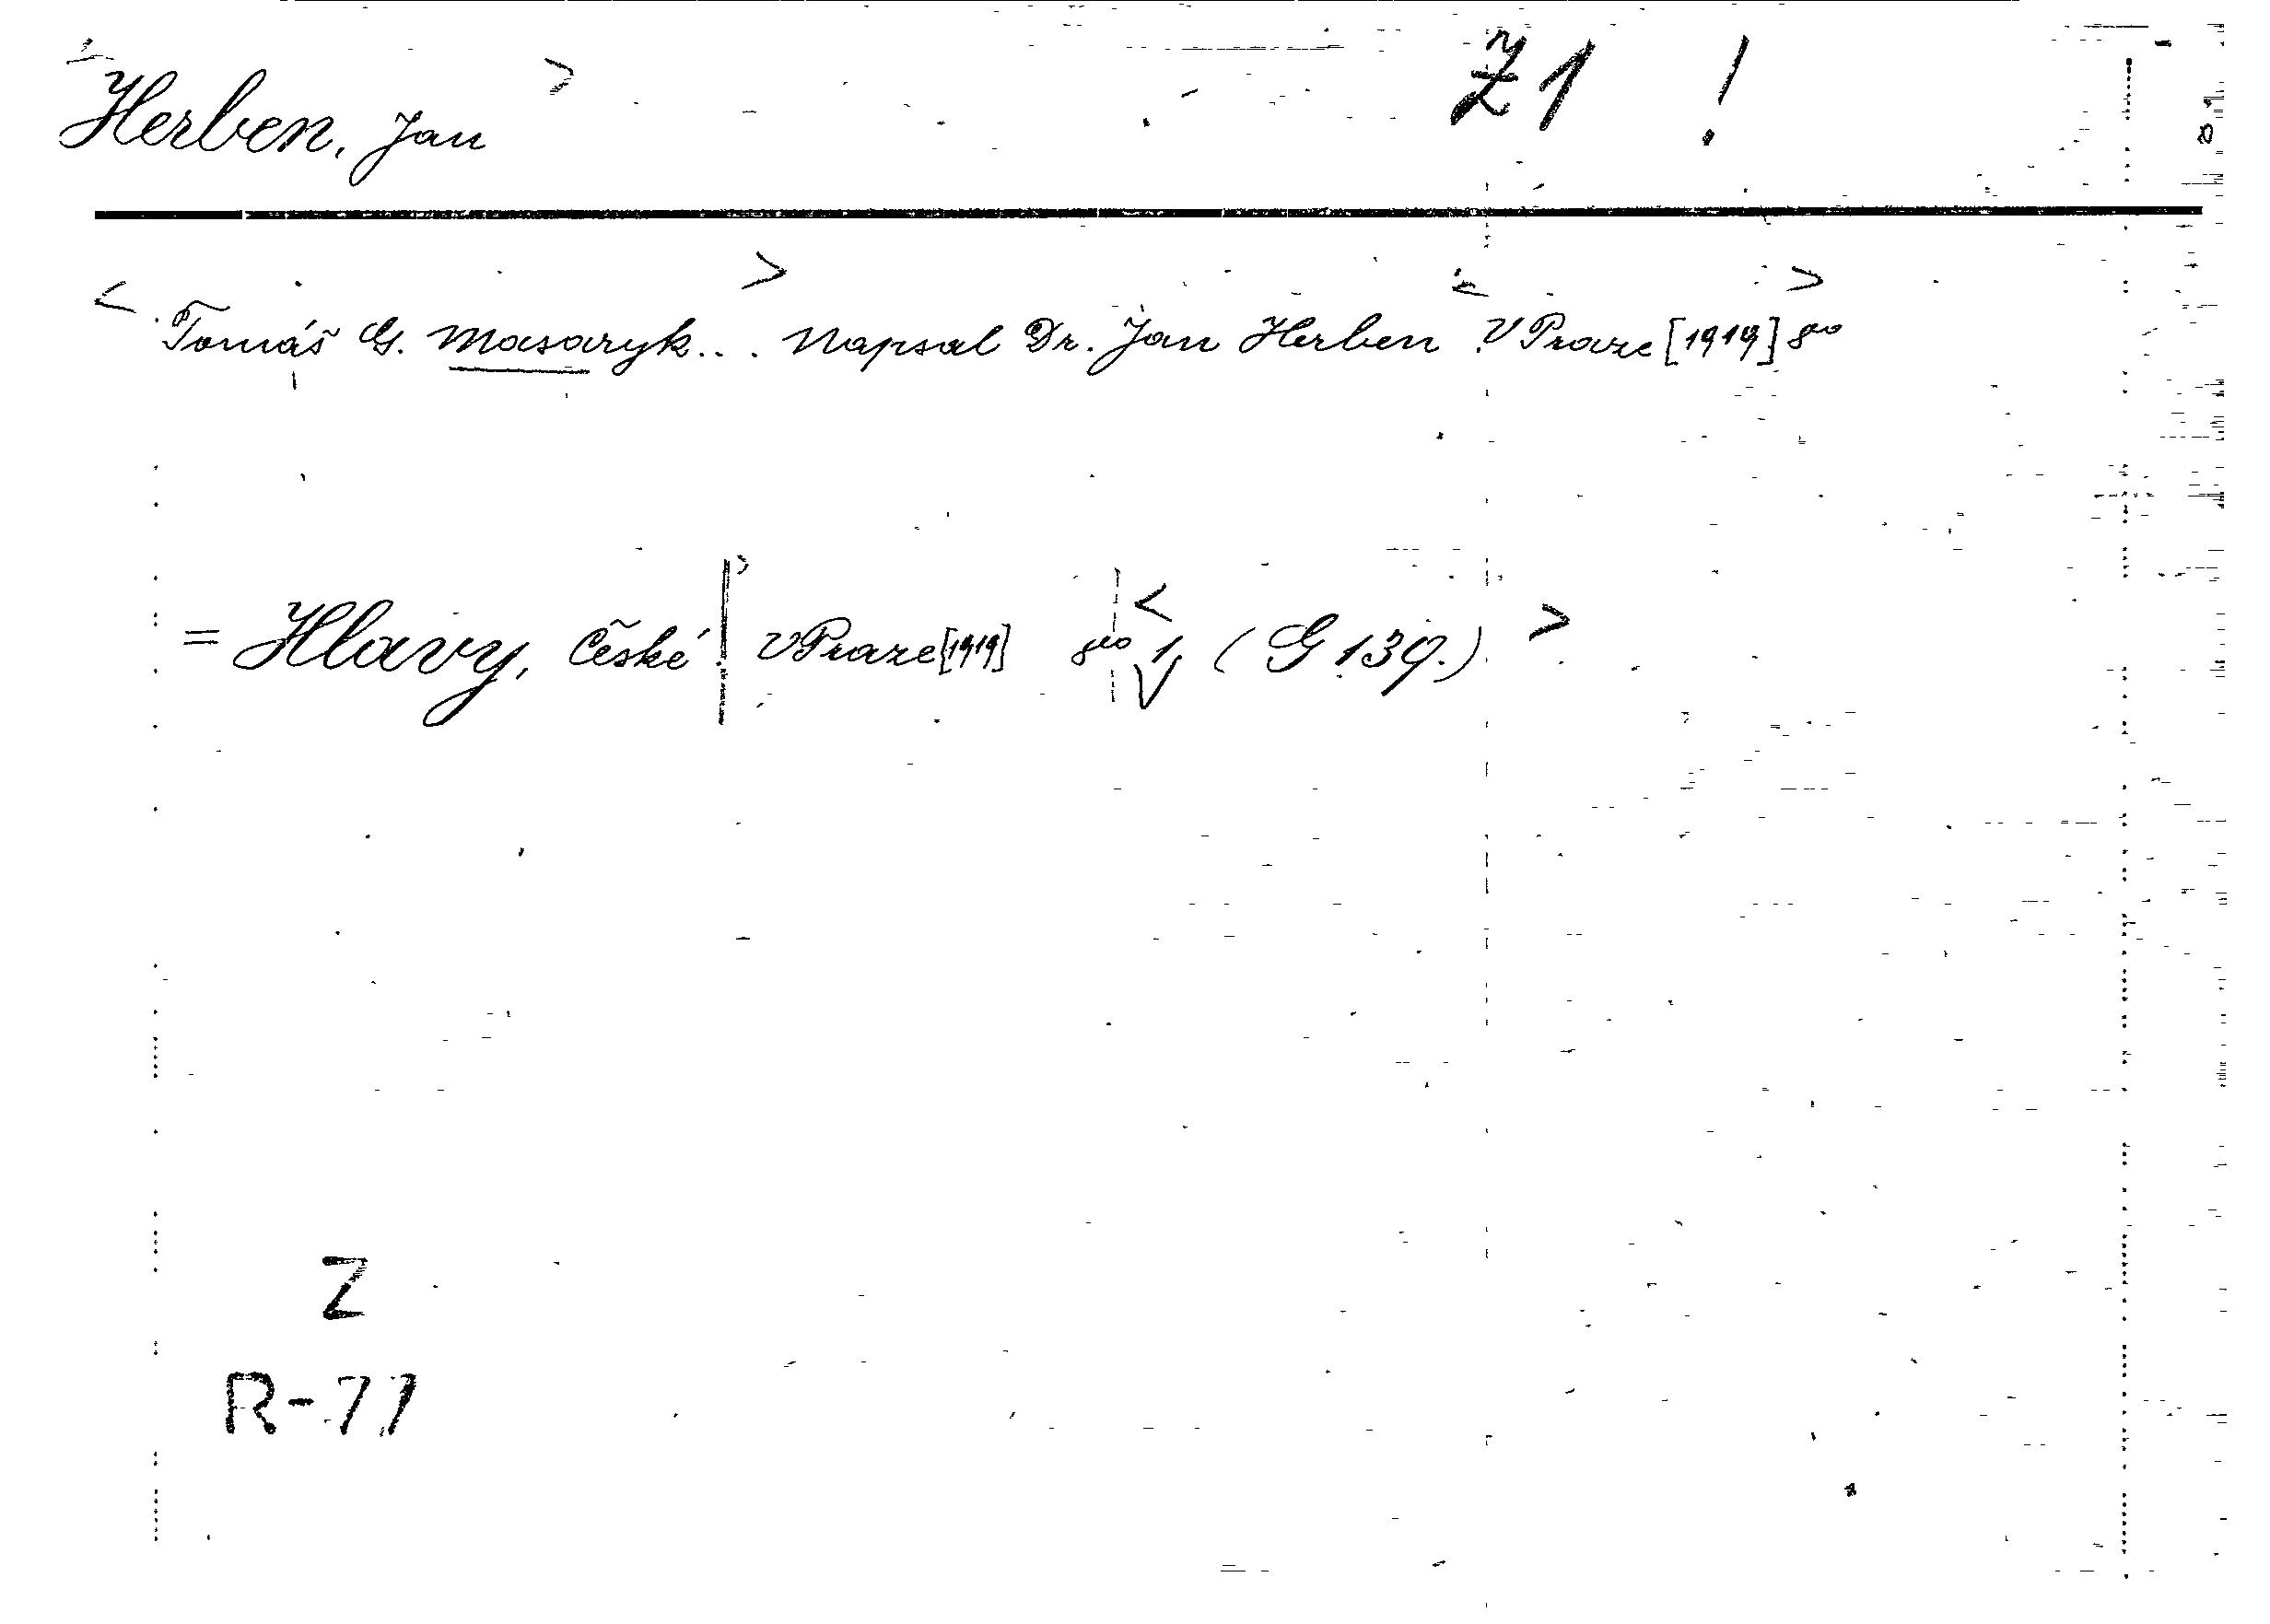 Herben, Jan Ž1 !
< Tomáš G. Masaryk... > Napsal Dr. Jan Herben < V Praze [1919] > 8°
= Hlavy, České | V Praze [1919] 8° < 1, (G 139.) >
Z
R-77